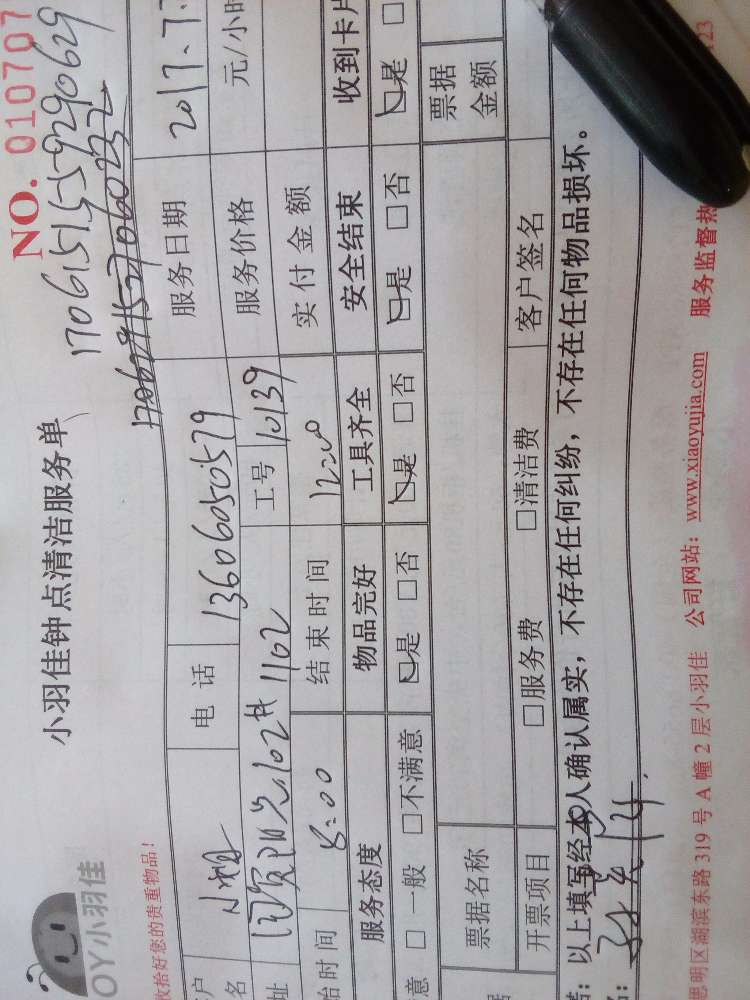 NO. 010707
小羽佳钟点清洁服务单
17061515592 90629
OY小羽佳
收拾好您的贵重物品!
户名
电话 13606050579
服务日期 2017.7.
址 102# 1102
工号 10139
服务价格 元/小时
始时间 8:00
结束时间 12:00
实付金额
服务态度 物品完好 工具齐全 安全结束 收到卡片
意 □一般 □不满意 □是 □否 □是 □否 □是 □否 □是 □
票据名称 票据金额
开票项目 □服务费 □清洁费 客户签名
:以上填写经本人确认属实,不存在任何纠纷,不存在任何物品损坏。
思明区湖滨东路319号A幢2层小羽佳 公司网站:www.xiaoyujia.com 服务监督热 123